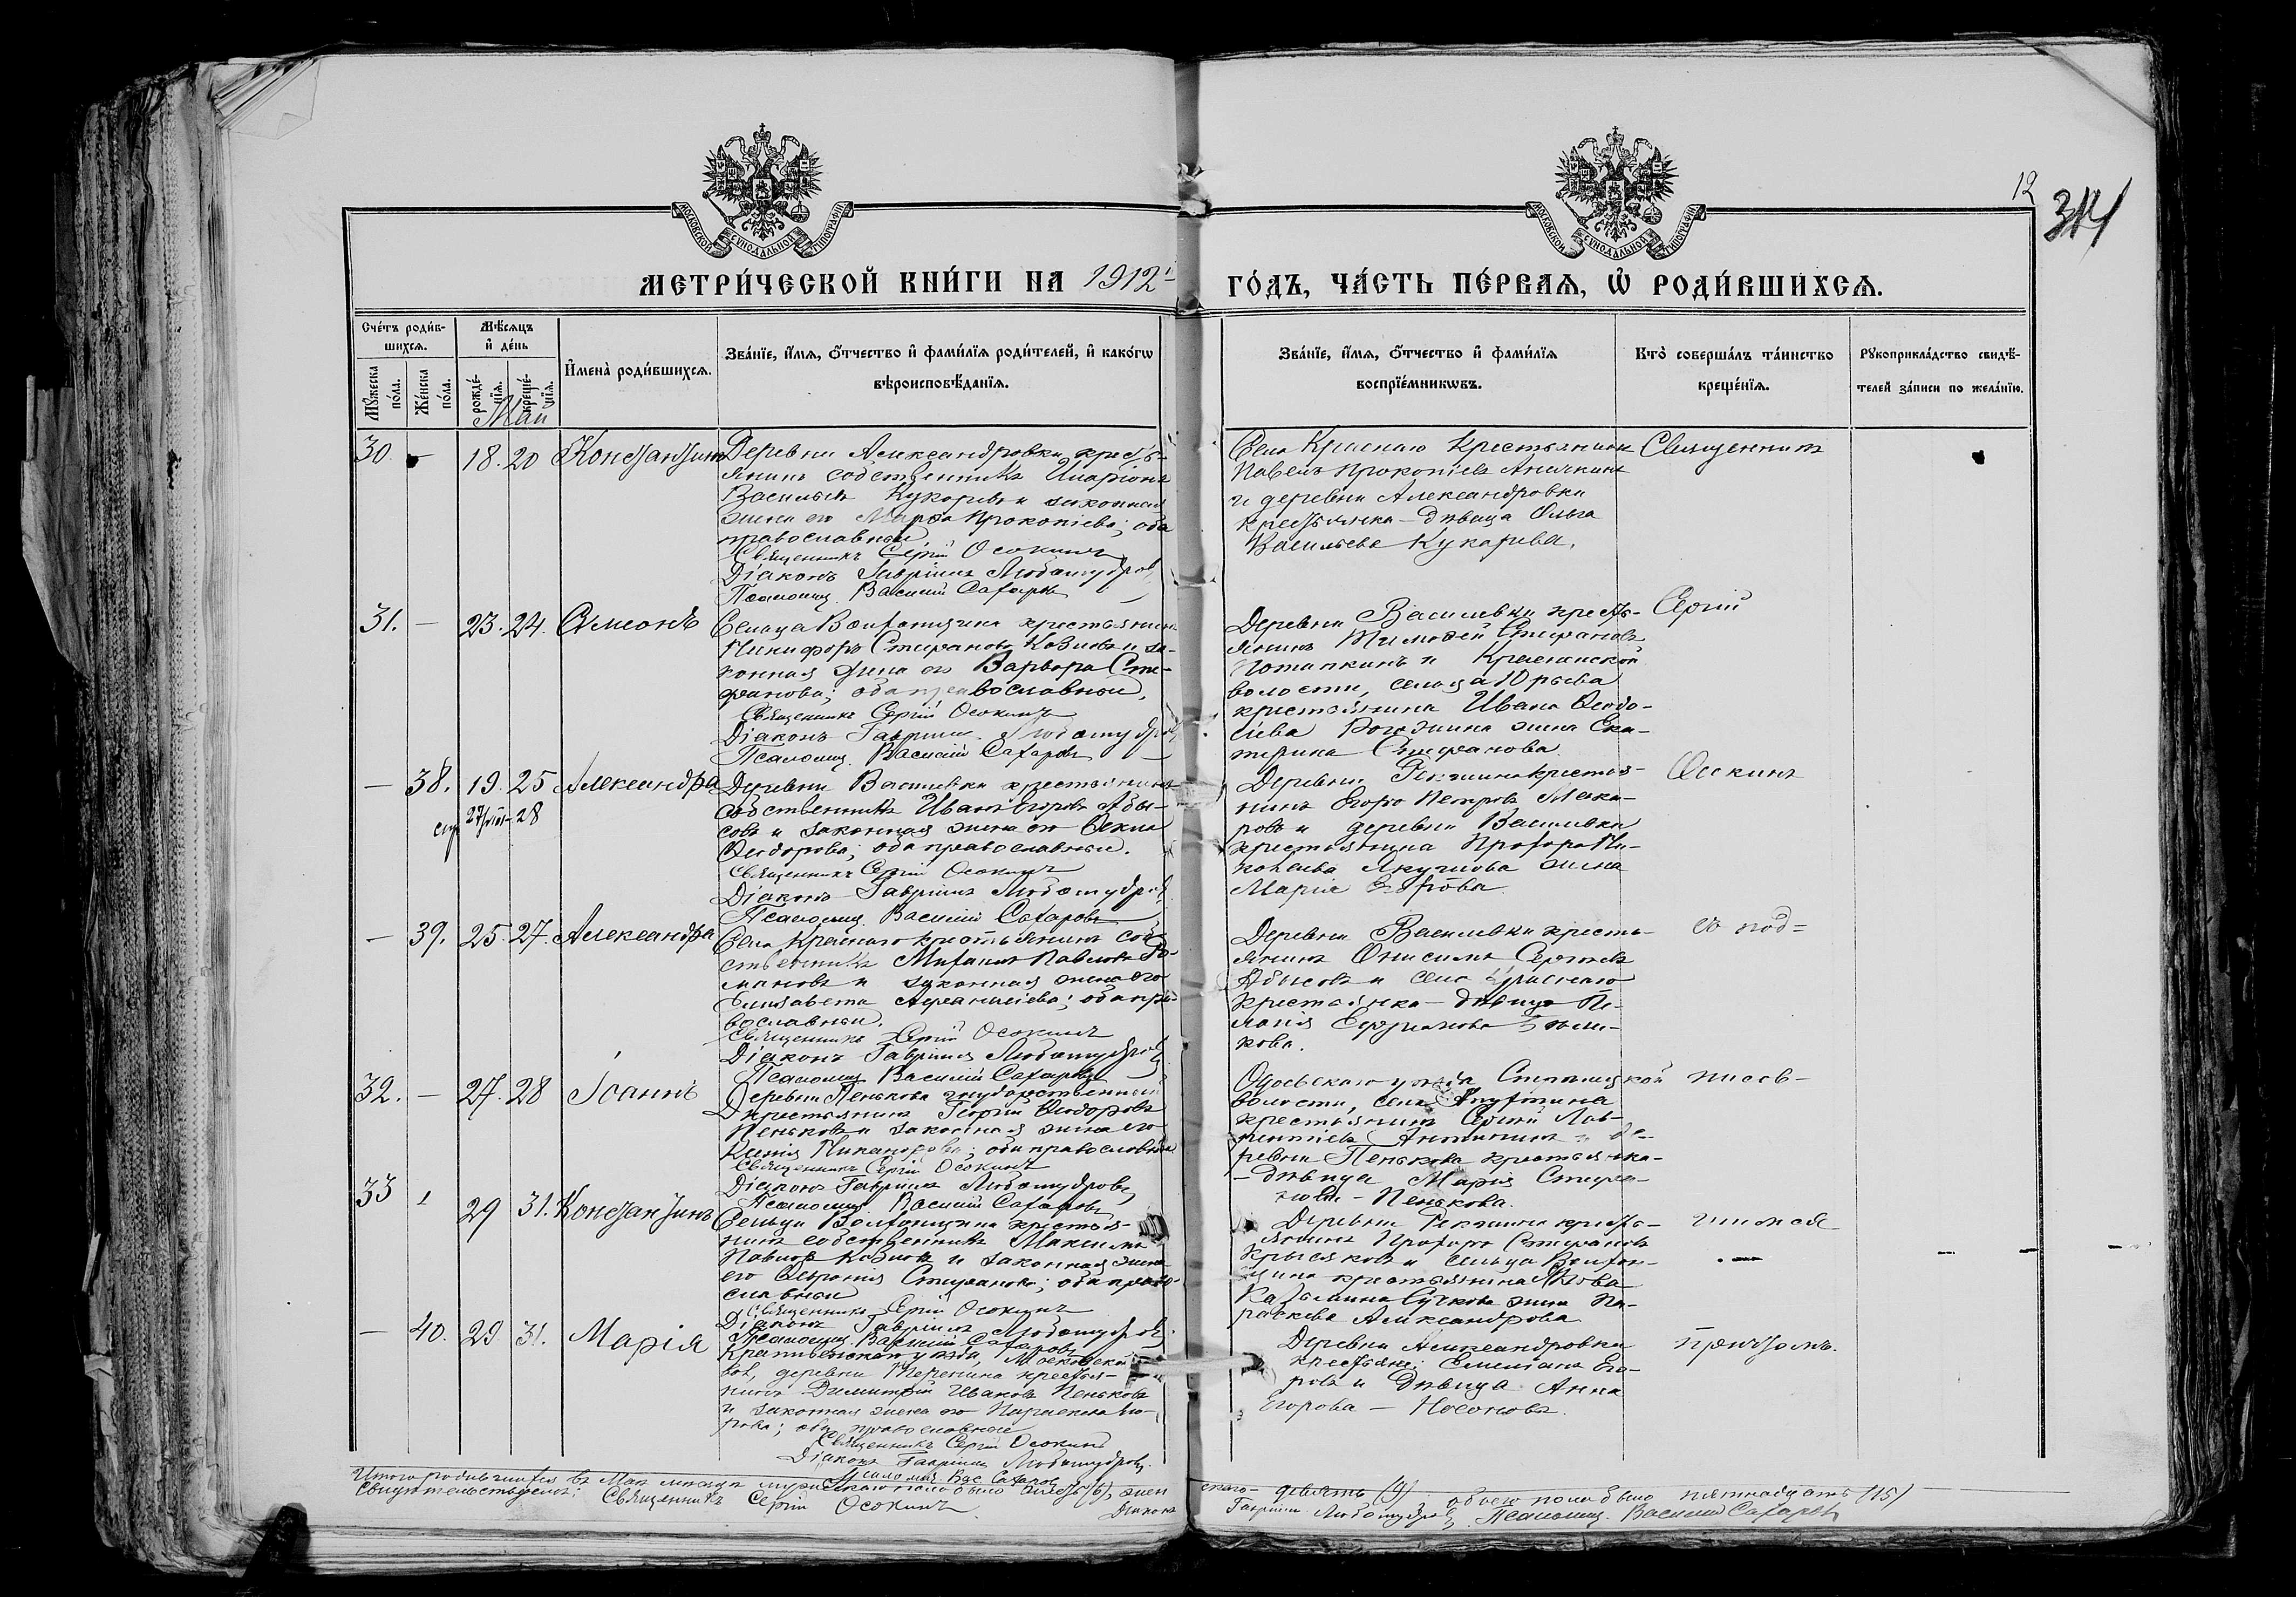 12
314
МОСКОВСКОЙ СѴНОДАЛЬНОЙ ТИПОГРАФІИ
МОСКОВСКОЙ СѴНОДАЛЬНОЙ ТИПОГРАФІИ
МЕТРИ́ЧЕСКОЙ КНИ́ГИ НА 1912
ГО́ДЪ, ЧА́СТЬ ПЕ́РВАѦ, Ѡ РОДИ́ВШИХСѦ.
Сче́тъ роди́в-
шихсѧ.
Мѣ́сѧцъ
и де́нь
Мꙋ́жеска по́ла.
Же́нска по́ла.
рожде́-нїѧ.
креще́-нїѧ.
Имена̀ роди́вшихсѧ.
Зва́нїе, и́мѧ, о́тчество и фами́лїѧ роди́телей, и како́гѡ
вѣроисповѣ́данїѧ.
Зва́нїе, и́мѧ, о́тчество и фами́лїѧ
воспрїе́мникѡвъ.
Кто̀ соверша́лъ та́инство
креще́нїѧ.
Рꙋкоприкла́дство свидѣ́-
телей за́писи по жела́нїю.
Май
30 – 18. 20 Константинъ
Деревни Александровки кресть-
янинъ собственникъ Иларіонъ
Васильевъ Кукаревъ и законная
жена его Марѳа Прокопіева; оба
православные
Священникъ Сергій Осокинъ
Діаконъ Гавріилъ Любомудровъ
Псаломщ. Василій Сахаровъ
Села Краснаго крестьянинъ
Павелъ Прокопіевъ Аничкинъ
и деревни Александровки
крестьянка – дѣвица Ольга
Васильева Кукарева.
Священникъ
31. – 23. 24. Симеонъ
Сельца Волтонщина крестьянинъ
Никифоръ Стефановъ Козловъ и за-
конная жена его Варвара Сте-
фанова; оба православные.
Священникъ Сергій Осокинъ
Діаконъ Гавріилъ Любомудровъ
Псаломщ. Василій Сахаровъ
Деревни Васильевки кресть-
янинъ Тимоѳей Стефановъ
Потапкинъ и Краснинской
волости, сельца Юрьева
крестьянина Ивана Ѳеодо-
сіева жена Ека-
терина Стефанова
Сергій
– 38. 19. 25 Александра
28
Деревни Васильевки крестьянинъ
собственникъ Иванъ Егоровъ Абы-
совъ и законная жена его Ѳекла
Ѳеодорова; оба православные.
Священникъ Сергій Осокинъ
Діаконъ Гавріилъ Любомудровъ
Псаломщ. Василій Сахаровъ
Деревни крестья-
нинъ Егоръ Петровъ Мака-
ровъ и деревни Васильевки
крестьянина Прохора Ни-
колаева Якунова жена
Марія
Осокинъ
– 39. 25. 27. Александра
Села Краснаго крестьянинъ соб-
ственникъ Михаилъ Павловъ Ро-
мановъ и законная жена его
Елизавета Аѳанасіева; оба пра-
вославные.
Священникъ Сергій Осокинъ
Діаконъ Гавріилъ Любомудровъ
Псаломщ. Василій Сахаровъ
Деревни Васильевки кресть-
янинъ Онисимъ Сергѣевъ
Абысовъ и села Краснаго
крестьянка – дѣвица Пе-
лагія
кова.
съ под-
32. – 27. 28 Іоаннъ
Деревни Пенькова государственный
крестьянинъ Георгій Ѳеодоровъ
Пеньковъ и законная жена его
Ксенія Никанорова; оба православные
Священникъ Сергій Осокинъ
Діаконъ Гавріилъ Любомудровъ
Псаломщ. Василій Сахаровъ
Одоевскаго уѣзда
волости, села
крестьянинъ Сергій Лав-
рентіевъ и де-
ревни Пенькова крестьянка-
– дѣвица Марія Стефа-
нова – Пенькова.
писав-
33 29 31. Константинъ
Сельца Волтонщина крестья-
нинъ собственникъ Максимъ
Павловъ Козловъ и законная жена
его Стефанова; оба право-
славные
Священникъ Сергій Осокинъ
Діаконъ Гавріилъ Любомудровъ.
Псаломщ. Василій Сахаровъ
Деревни кресть-
янинъ Прохоръ Стефановъ
Крысяковъ и сельца Волтон-
щина крестьянина
жена Па-
раскева Александрова
шимся
– 40. 29. 31. Марія
Крапивенскаго уѣзда,
вол., деревни крестья-
нинъ Димитрій Ивановъ Пеньковъ
и законная жена его Параскева Его-
рова; оба православные
Священникъ Сергій Осокинъ
Діаконъ Гавріилъ Любомудровъ.
Псаломщ. Вас. Сахаровъ
Деревни Александровки
крестьяне: Емеліанъ Его-
ровъ и дѣвица Анна
Егорова – Носоновы.
причтомъ.
Итого родившихся въ Маѣ мѣсяцѣ мужескаго пола было шесть (6), жен
скаго – девять (9) обоего пола было пятнадцать (15)
Свидѣтельствуемъ: Священникъ Сергій Осокинъ. Діаконъ
Гавріилъ Любомудровъ Псаломщ. Василій Сахаровъ